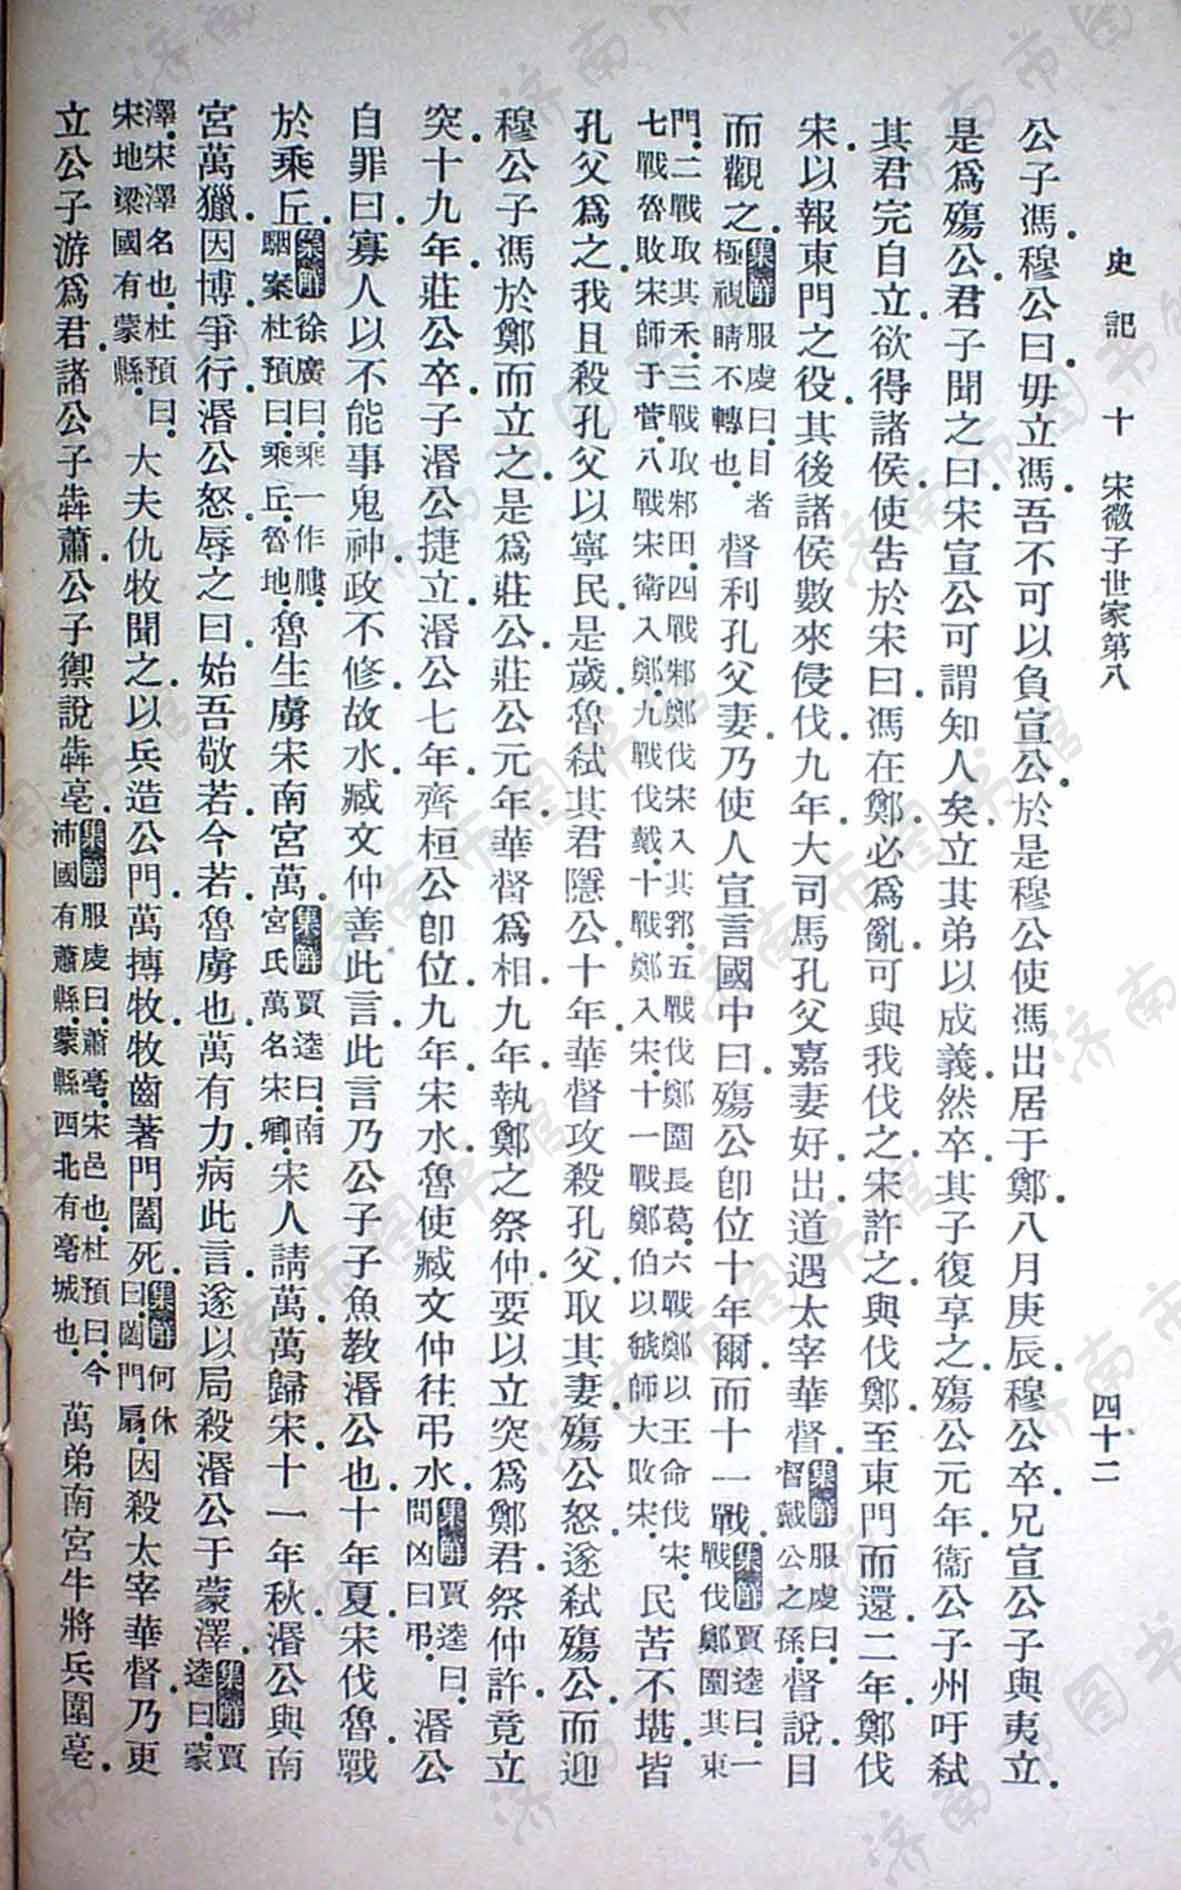 史記　十　宋微子世家第八　四十二
公子馮.穆公曰.毋立馮.吾不可以負宣公.於是穆公使馮出居于鄭.八月庚辰.穆公卒.兄宣公子與夷立.
是爲殤公.君子聞之曰.宋宣公可謂知人矣.立其弟以成義.然卒其子復享之.殤公元年.衞公子州吁弒
其君完自立.欲得諸侯.使告於宋曰.馮在鄭.必爲亂.可與我伐之.宋許之.與伐鄭.至東門而還.二年.鄭伐
宋.以報東門之役.其後諸侯數來侵伐.九年.大司馬孔父嘉妻好.出.道遇太宰華督.集解服虔曰.督戴公之孫.督說.目
而觀之.集解服虔曰.目者極視睛不轉也.督利孔父妻.乃使人宣言國中曰.殤公卽位十年爾.而十一戰.集解賈逵曰.一戰伐鄭圍其東
門.二戰取其禾.三戰取邾田.四戰邾鄭伐宋入其郛.五戰伐鄭圍長葛.六戰鄭以王命伐宋.七戰魯敗宋師于菅.八戰宋衛入鄭.九戰伐戴.十戰鄭入宋.十一戰鄭伯以虢師大敗宋.民苦不堪.皆
孔父爲之.我且殺孔父以寧民.是歲.魯弒其君隱公.十年.華督攻殺孔父.取其妻.殤公怒.遂弒殤公.而迎
穆公子馮於鄭而立之.是爲莊公.莊公元年.華督爲相.九年.執鄭之祭仲.要以立突爲鄭君.祭仲許.竟立
突.十九年.莊公卒.子湣公捷立.湣公七年.齊桓公卽位.九年.宋水.魯使臧文仲往弔水.集解賈逵曰.問凶曰弔.湣公
自罪曰.寡人以不能事鬼神.政不修.故水.臧文仲善此言.此言乃公子子魚教湣公也.十年夏.宋伐魯.戰
於乘丘.集解徐廣曰.乘一作媵.駰案杜預曰.乘丘.魯地.魯生虜宋南宮萬.集解賈逵曰.南宮氏萬名宋卿.宋人請萬.萬歸宋.十一年秋.湣公與南
宮萬獵.因博爭行.湣公怒.辱之曰.始吾敬若.今若.魯虜也.萬有力.病此言.遂以局殺湣公于蒙澤.集解賈逵曰.蒙
澤.宋澤名也.杜預曰.宋地梁國有蒙縣.大夫仇牧聞之.以兵造公門.萬搏牧.牧齒著門闔死.集解何休曰.闔門扇.因殺太宰華督.乃更
立公子游爲君.諸公子犇蕭.公子禦說犇亳.集解服虔曰.蕭亳.宋邑也.杜預曰.今沛國有蕭縣.蒙縣西北有亳城也.萬弟南宮牛將兵圍亳.
济南市图书馆